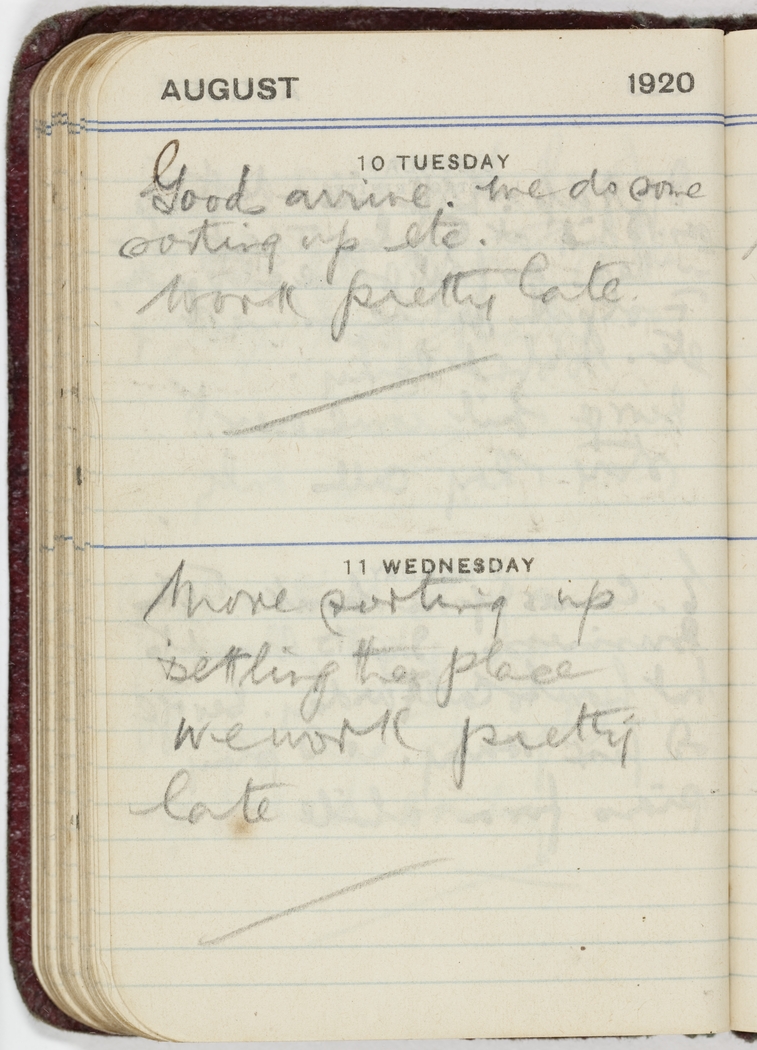 AUGUST 1920
10 TUESDAY
Goods arrive. We do some
sorting up etc.
Work pretty late.
11 WEDNESDAY
More sorting up
settling the place
We work pretty
late